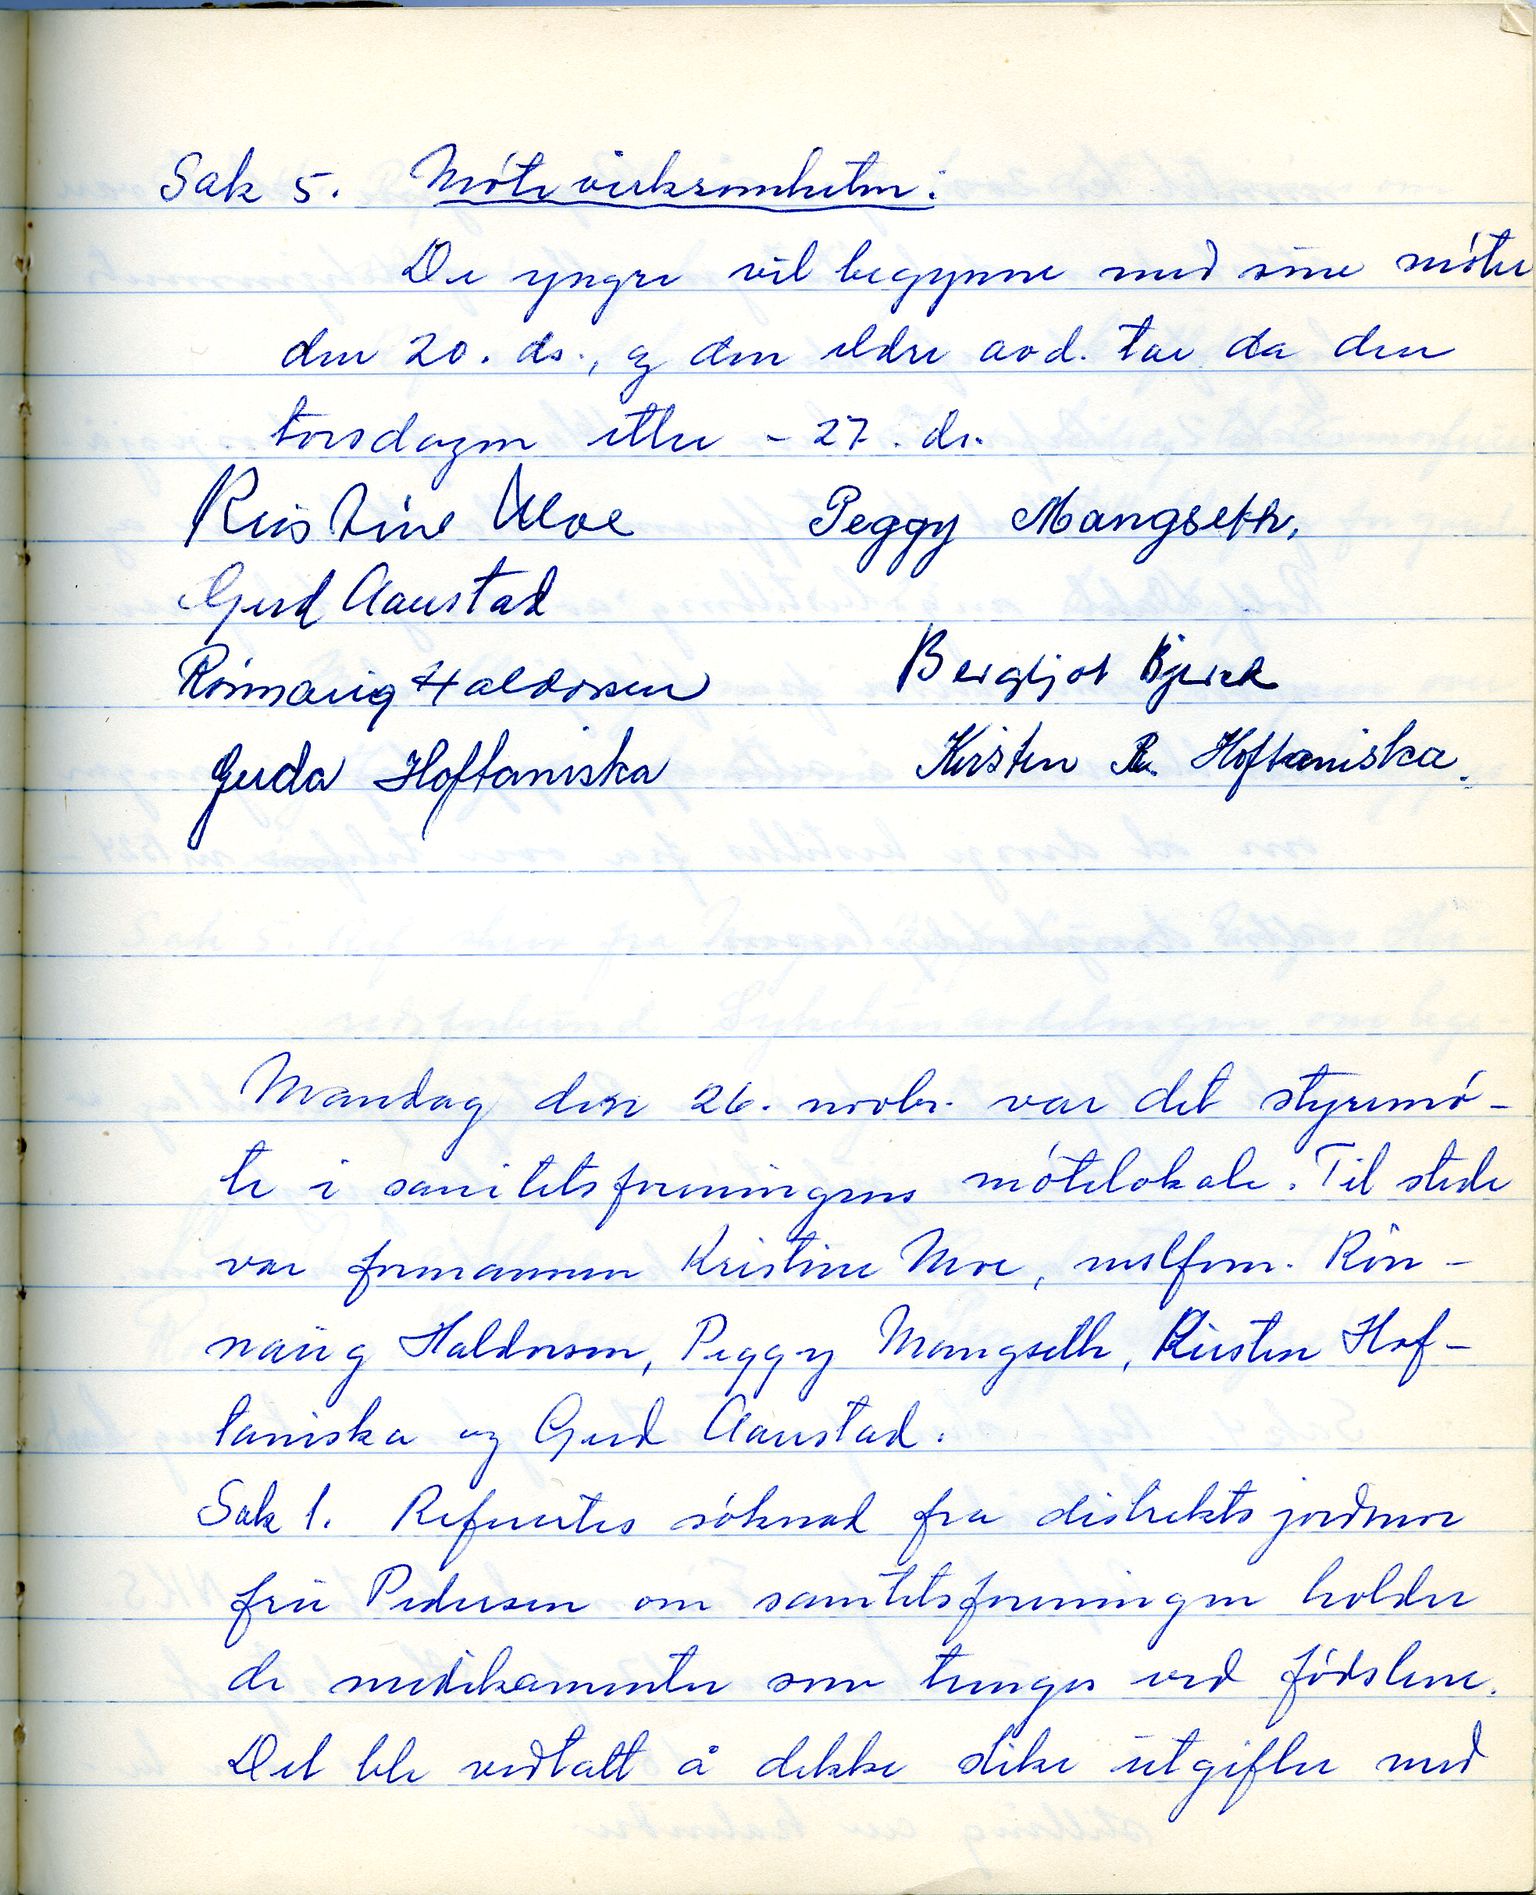 Sak 5. Møtevirksomheten:
De yngre vil begynne med sine møter
den 20. ds., og den eldre avd. tar da den
torsdagen etter - 27. ds.
Kristine Moe Peggy Mangseth,
Gerd Aanstad
Rønnaug Haldorsen Bergljot Bjerck
Gerda Hoftaniska Kirsten R. Hoftaniska.
Mandag den 26. novbr. var det styremø-
te i sanitetsforeningens møtelokale. Til stede
var formannen Kristine Moe, nestform. Røn-
naug Haldorsen, Peggy Mangseth, Kirsten Hof-
taniska og Gerd Aanstad.
Sak 1. Refertes søknad fra distrikts jordmor
fru Pedersen om sanitetsforeningen holder
de medikamenter som trenges ved fødslene.
Det ble vedtatt å dekke slike utgifter med